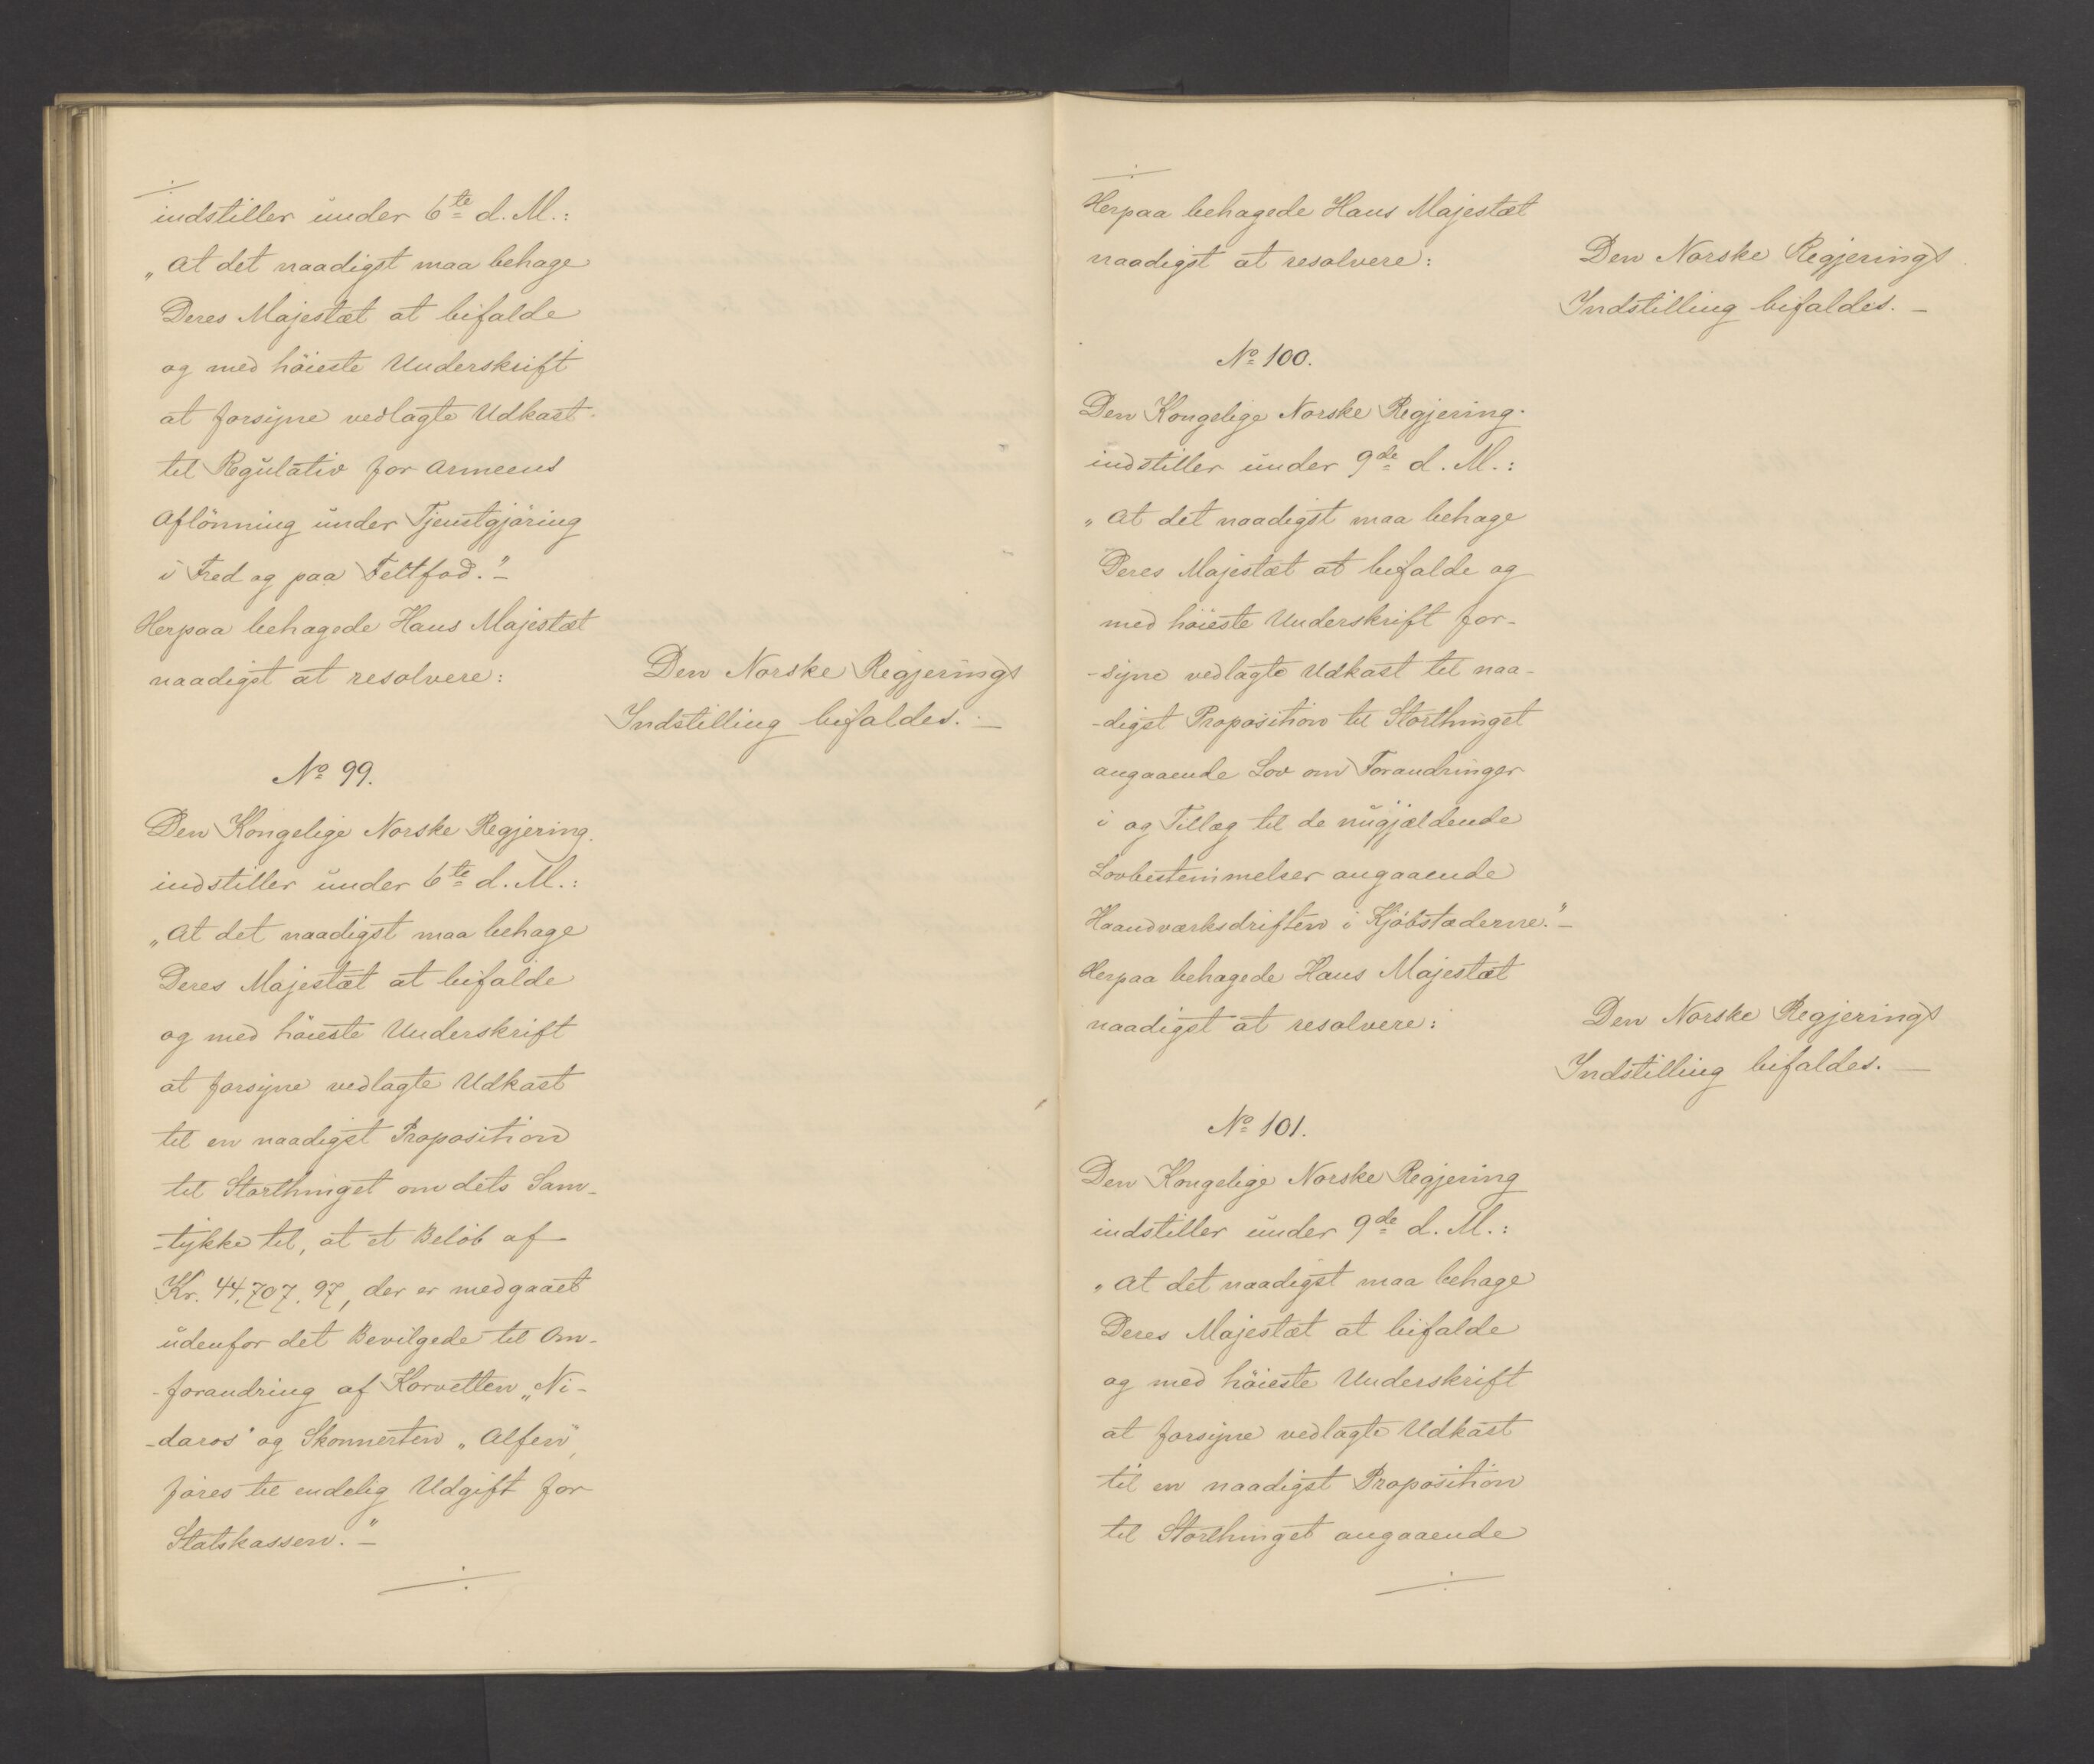 ./.
indstiller under 6te d. M.:
„At det naadigst maa behage
Deres Majestæt at bifalde
og med höieste Underskrift
at forsyne vedlagte Udkast
til Regulativ for Armeens
Aflönning under Tjenstgjöring
i Fred og paa Feltfod."—
Herpaa behagede Hans Majestæt
naadigst at resolvere:
Den Norske Regjerings
Indstilling bifaldes. —
No 99.
Den Kongelige Norske Regjering
indstiller under 6te d. M.:
„At det naadigst maa behage
Deres Majestæt at bifalde
og med höieste Underskrift
at forsyne vedlagte Udkast
til en naadigst Proposition
til Storthinget om dets Sam-
-tykke til, at et Belöb af
Kr. 44,707.97, der er medgaaet
udenfor det Bevilgede til Om-
-forandring af Korvetten „Ni-
-daros" og Skonnerten „Alfen",
föres til endelig Udgift for
Statskassen."—
./.
./.
Herpaa behagede Hans Majestæt
naadigst at resolvere:
Den Norske Regjerings
Indstilling bifaldes. —
No 100.
Den Kongelige Norske Regjering
indstiller under 9de d. M.:
„At det naadigst maa behage
Deres Majestæt at bifalde og
med höieste Underskrift for-
-syne vedlagte Udkast til naa-
-digst Proposition til Storthinget
angaaende Lov om Forandringer
i og Tillæg til de nugjældende
Lovbestemmelser angaaende
Haandværksdriften i Kjöbstæderne."—
Herpaa behagede Hans Majestæt
naadigst at resolvere:
Den Norske Regjerings
Indstilling bifaldes. —
No 101.
Den Kongelige Norske Regjering
indstiller under 9de d. M.:
„At det naadigst maa behage
Deres Majestæt at bifalde
og med höieste Underskrift
at forsyne vedlagte Udkast
til en naadigst Proposition
til Storthinget angaaende
./.